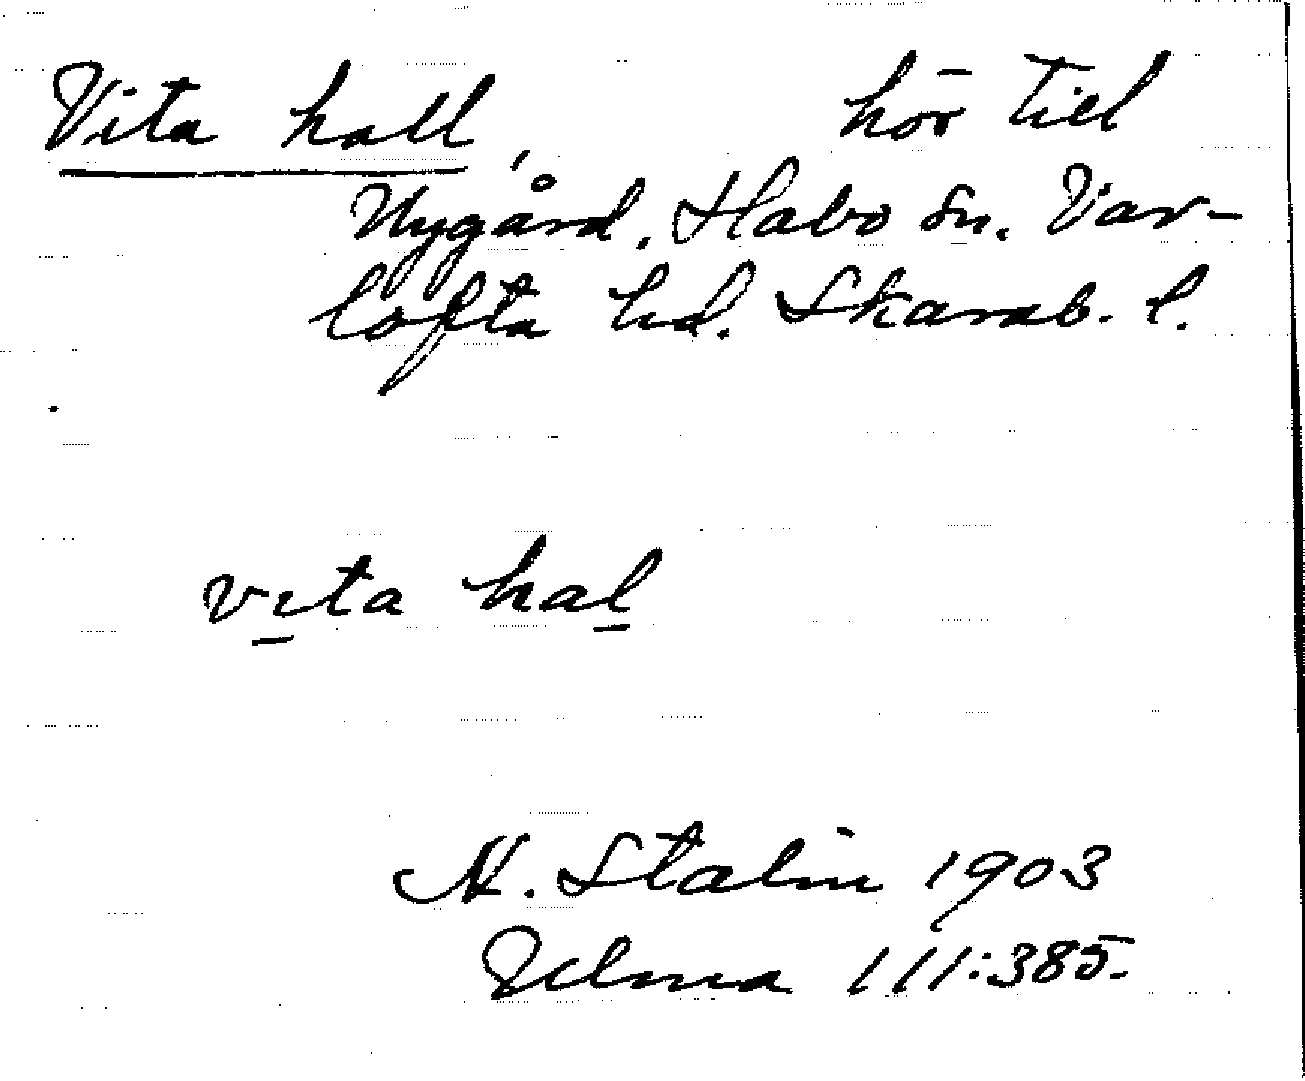 Vita hall, hör till
Nygård, Habo sn. Var-
tofta hd. Skarab. l.
vita hal
N. Stalin 1903
Ulma 111:385.